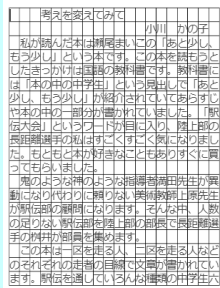 考えを変えてみて
小川　かの子
私が読んだ本は瀬尾まいこの「あと少し、
もう少し」という本です。この本を読もうと
したきっかけは国語の教科書です。教科書に
は「本の中の中学生」という見出しで「あと
少し、もう少し」が紹介されていてあらすじ
や本の中の一部分が書かれていました。「駅
伝大会」というワードが目に入り、陸上部の
長距離選手の私はすごくすごく気になりまし
た。もともと本が好きなこともありすぐに買
ってもらいました。
鬼のような神のような指導者満田先生が異
動になり代わりに頼りない美術教師上原先生
が駅伝部の顧問になります。そんな中、人数
の足りない駅伝部を陸上部の部長で長距離選
手の桝井が部員を集めます。
この本は一区を走る人、二区を走る人など
のそれぞれの走者の目線で文章が書かれてい
ます。駅伝を通していろんな種類の中学生六